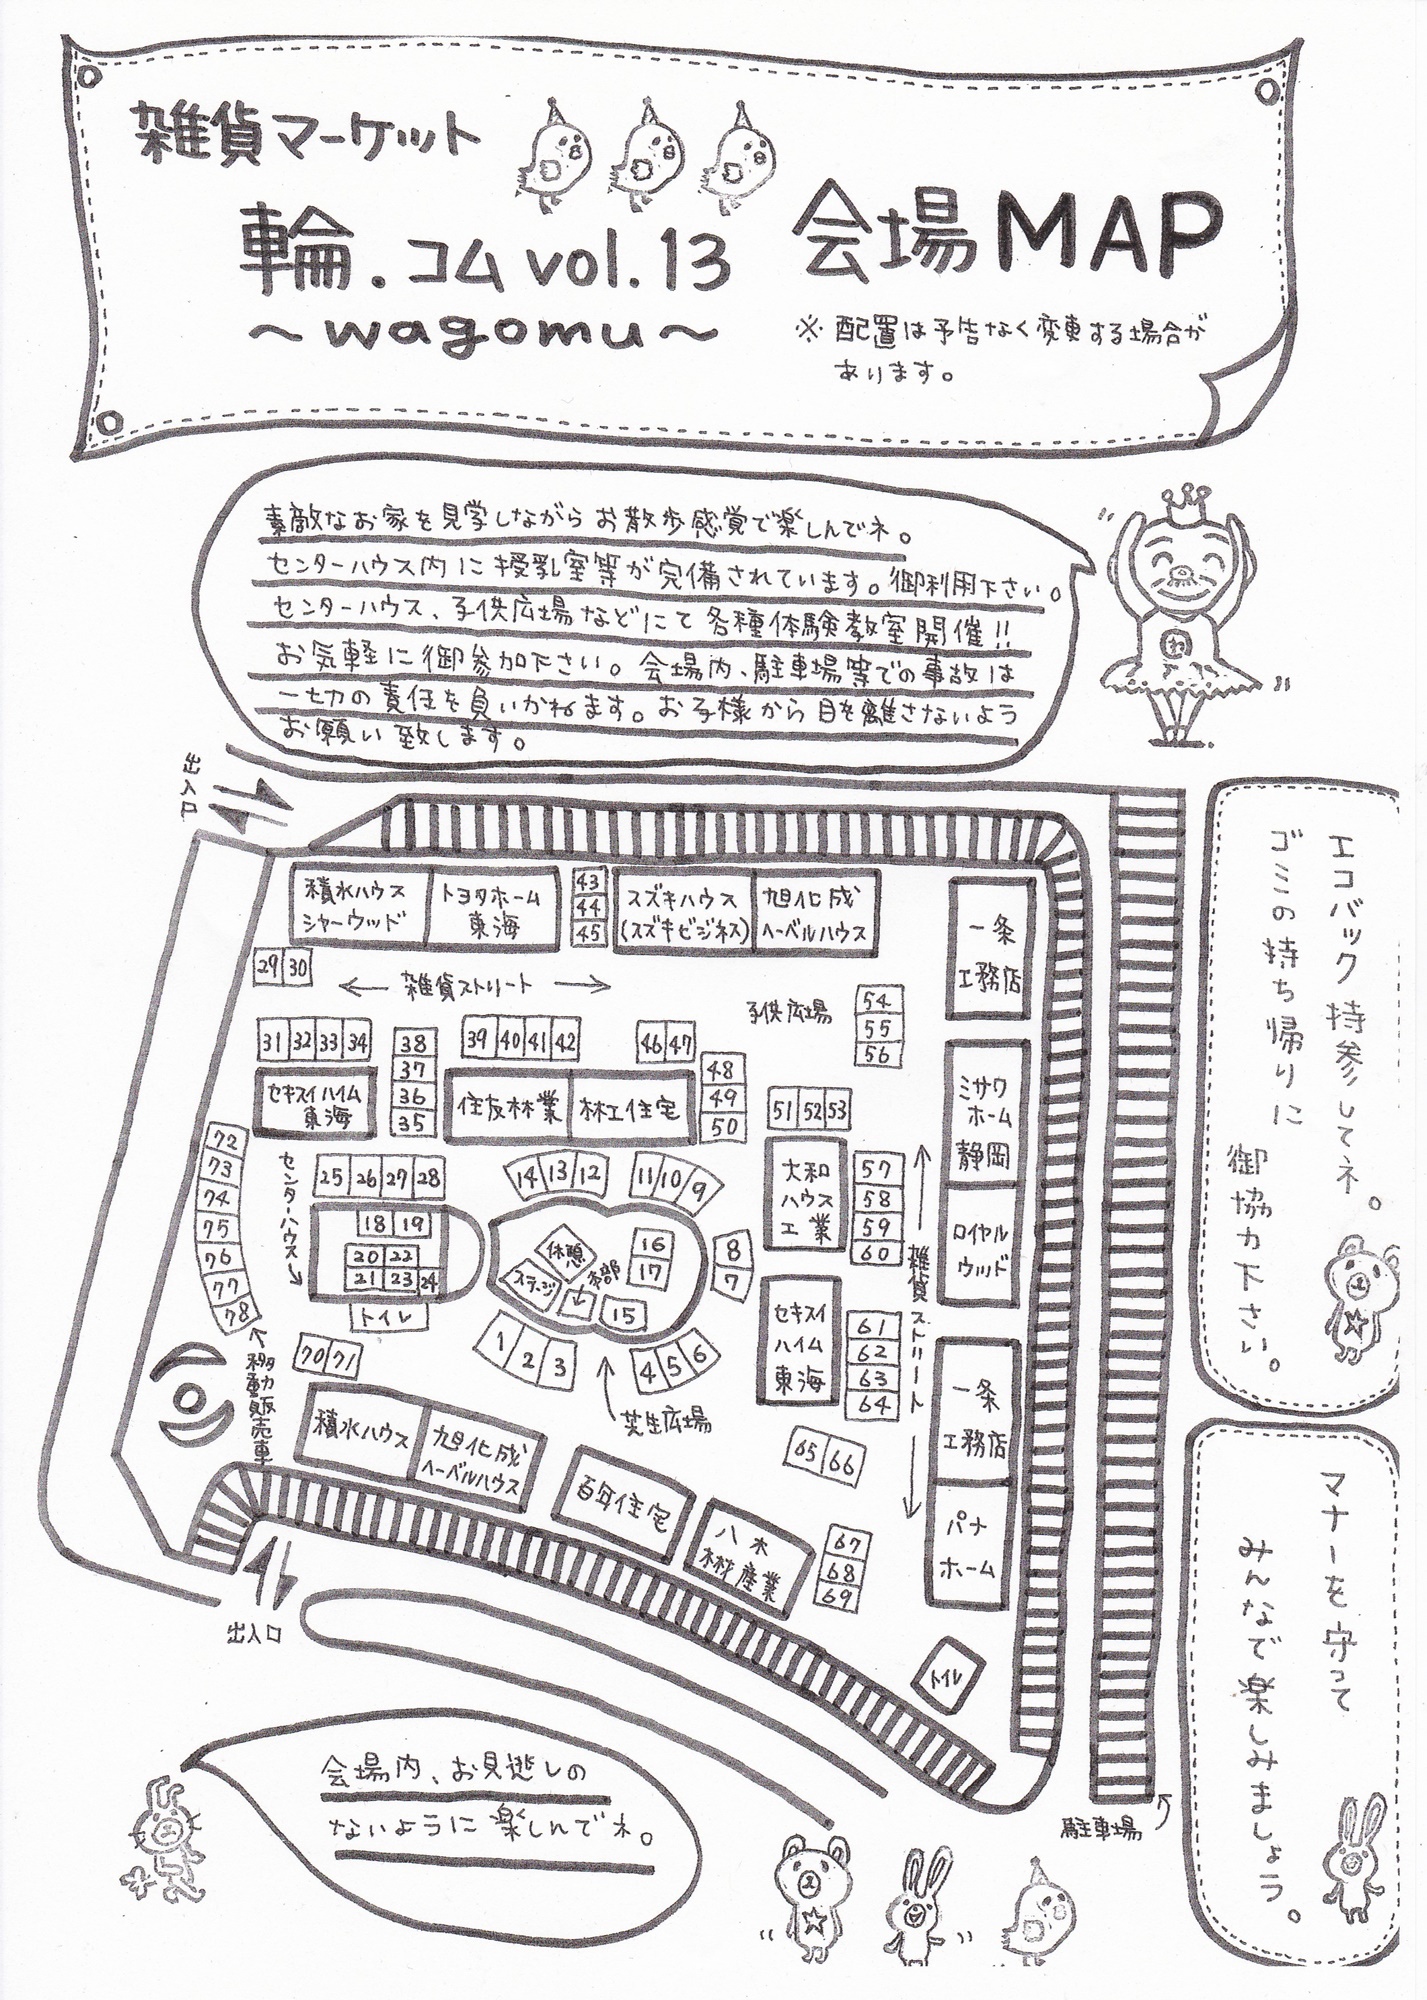 雑貨マーケット
輪.コム vol.13
～wagomu～
会場MAP
※配置は予告なく変更する場合が
あります。
素敵なお家を見学しながらお散歩感覚で楽しんでネ。
センターハウス内に授乳室等が完備されています。御利用下さい。
センターハウス、子供広場などにて各種体験教室開催!!
お気軽に御参加下さい。会場内、駐車場等での事故は
一切の責任を負いかねます。お子様から目を離さないよう
お願い致します。
わ
出入口
積水ハウス
シャーウッド
トヨタホーム
東海
43
44
45
スズキハウス
(スズキビジネス)
旭化成
ヘーベルハウス
一条
工務店
29 30
← 雑貨ストリート →
子供広場
54
55
56
31 32 33 34
38
37
36
35
39 40 41 42
46 47
48
49
50
セキスイハイム
東海
住友林業
林工住宅
51 52 53
ミサワ
ホーム
静岡
ロイヤル
ウッド
72
73
74
75
76
77
78
センターハウス
25 26 27 28
18 19
20 22
21 23 24
トイレ
14 13 12
11 10 9
休憩
ステージ
本部
16
17
15
8
7
大和
ハウス
工業
57
58
59
60
雑貨ストリート
1 2 3
4 5 6
芝生広場
セキスイ
ハイム
東海
61
62
63
64
一条
工務店
パナ
ホーム
70 71
移動販売車
積水ハウス
旭化成
ヘーベルハウス
百年住宅
八木
林産業
65 66
67
68
69
トイレ
出入口
駐車場
エコバック持参してネ。
ゴミの持ち帰りに
御協力下さい。
マナーを守って
みんなで楽しみましょう。
会場内、お見逃しの
ないように楽しんでネ。